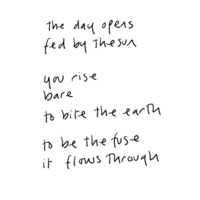 the day opens
fed by the sun
you rise
bare
to bite the earth
to be the fuse
it flows through